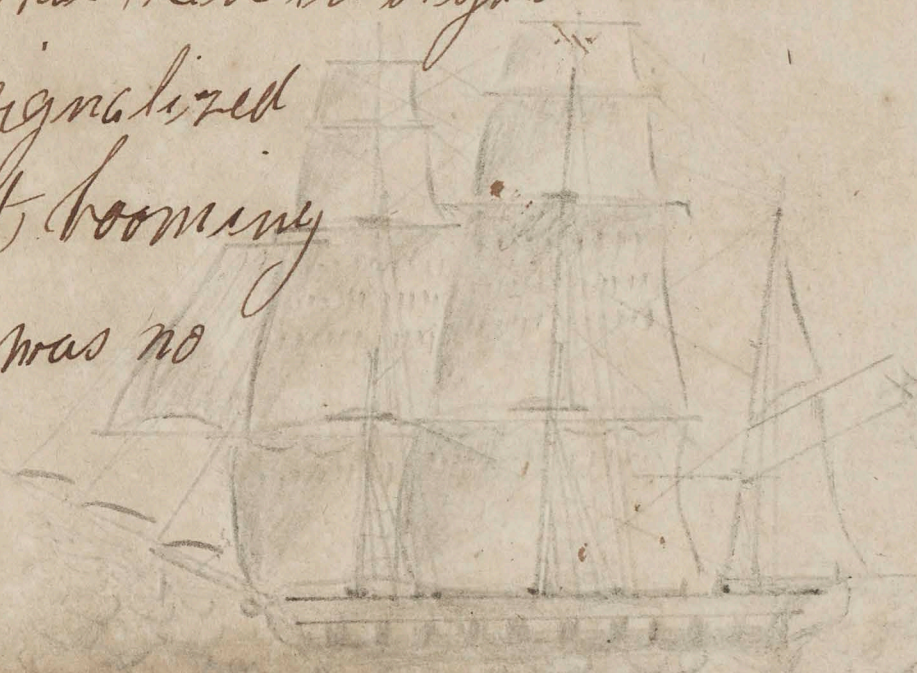 ignalized
t, booming
was no